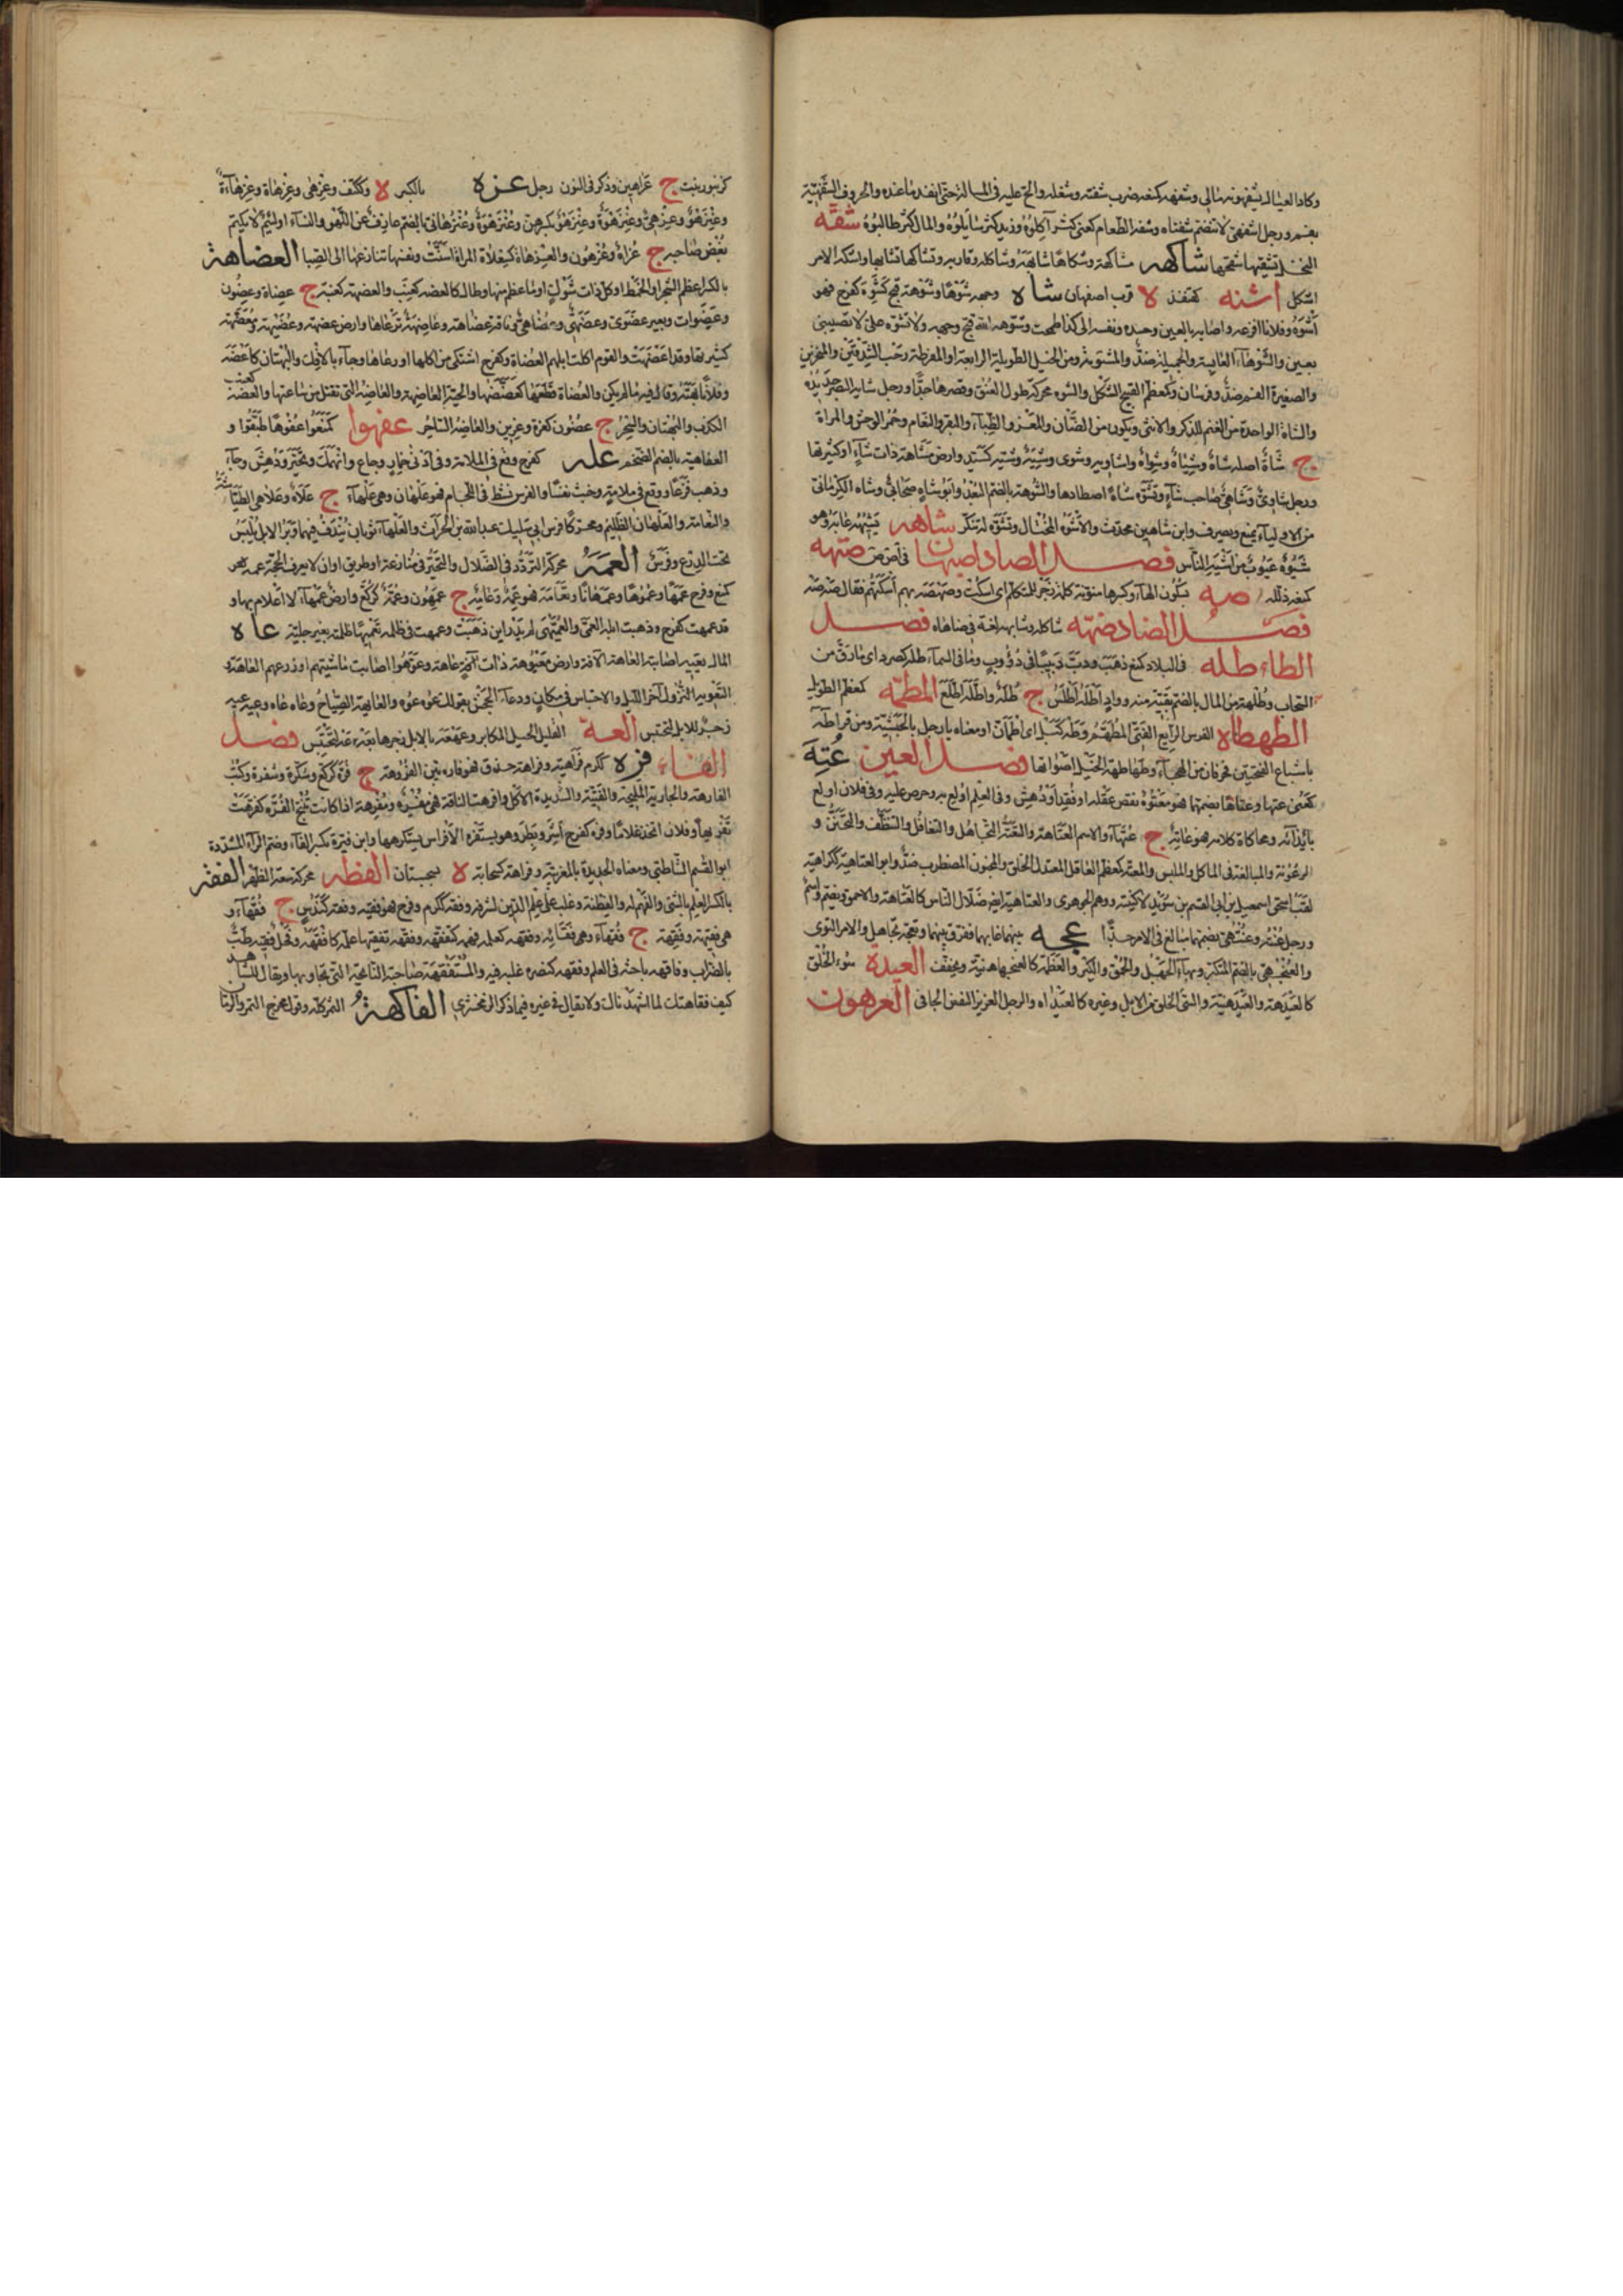 وكاد العيال يشفهون مالي وشفهه كمنعه ضرب شفته وشغله والح عليه في المسالة حتى انفد ما عنده والحروف الشفهية
بفم ورجل اشفهى لا تنضم شفتاه وشفه الطعام كعنى كثر آكلوه وزيد كثر سائلوه والمال كثر طالبوه شقه
النخل تشقيها شقحها شاكهه مشاكهة وشكاها شابهه وشاكله وقاربه وتشاكها تشابها واشكه الامر
اشكل اشنه كقنفذ لا قرب اصفهان شاه وجهه شوها وشوهة قبح كشوه كفرح فهو
اشوه وفلانا افزعه واصابه بالعين وحسده ونفسه الى كذا طمحت وشوهه الله قبح وجهه ولا تشوه على لا تصبني
بعين والشوهاء العابسة والجميلة ضد والمشومة ومن الخيل الطويلة الرايعة او المفرطة رحب الشدقين والمنخرين
والصغيرة الفم ضد وفرسان وكمعظم القبيح الشكل والشوه محركة طول العنق وقصرها ضد ورجل شايه البصر حديده
والشاة الواحدة من الغنم للذكر والانثى ويكون من الضان والمعز والظباء والبقر والنعام وحمر الوحش والمراة
ج شاء اصله شاه وشياه وشواه واشاوه وشوى وشيه وشيه كسيد وارض مشاهة ذات شاء او كثيرتها
ورجل شاوى وشاهى صاحب شاء وتشوه شاة اصطادها والشوهة بالضم البعد وابو شاه صحابى وشاه الكرمانى
من الاولياء يمنع ويصرف وابن شاهين محدث والاشوه المختال وتشوه له تنكر شاهه يشيهه عابه وهو
شيوه عيوب من اشيه الناس فصل الصاد اصبهان في اص ص صتهه
كمنعه ذلله صه بسكون الهاء وكسرها منونة كلمة زجر للمتكلم اى اسكت وصهصه بهم اسكتهم فقال صه صه
فصل الضاد ضهه شاكله وشابهه لغة في ضاهاه فصل
الطاء طله في البلاد كمنع ذهب ودب دبيبا في دؤوب وما في السماء طله كصرد اى ما رق من
السحاب وطلهة من المال بالضم بقية منه وواد اطله اطلس ج طله واطله اطلع المطمه كمعظم الطويل
الطهطاه الفرس الرايع الفتى المطهم وطه كبل اى اطمان او معناه يا رجل بالحبشية ومن قرا طه
باشباع الفتحتين فحرفان من الهجاء وطهاطه الخيل اصواتها فصل العين عته
كعنى عتها وعتاها بضمهما فهو معتوه نقص عقله او فقد او دهش وفى العلم اولع به وحرص عليه وفى فلان اولع
بايذائه ومحاكاة كلامه فهو عاته ج عتهاء والاسم العتاهة والتعته التجاهل والتغافل والتنظف والتجنن و
الرعونة والمبالغة فى الماكل والملبس والمعته كمعظم العاقل المعتدل الخلق والمجنون المضطرب ضد وابو العتاهية ككراهية
لقب ابى اسحق اسمعيل بن ابى القسم بن سويد لا كنيته ووهم الجوهرى والعتاهية ايضا ضلال الناس كالعتاهة والاحمق ويضم واسم
ورجل عته وعتهى بضمهما مبالغ فى الامر جدا عجه بينهما عابهما ففرق بينهما وتعجه تجاهل والامر التوى
والعنجهى بالضم المتكبر وبهاء الجهل والحمق والكبر والعظمة كالعنجهانية ويخفف العيده سوء الخلق
كالعيدهة والعيدهية والسئ الخلق من الابل وغيره كالعيداه والرجل العزيز النفس الجافى العرهون
كزنبور نبت ج عراهين وذكر فى النون رجل عزه بالكسر لا وككتف وعزهى وعزهاة وعزهاءة
وعنزهو وعزهى وعنزهوة وعنزهو بكسرهن وعنزهوة وعنزهانى بالضم عازف عن اللهو والنساء او لئيم لا يكتم
بغض صاحبه ج عزاه وعزهون والعزهاة كسعلاة المراة اسنت ونفسها تنازعها الى الصبا العضاهة
بالكسر اعظم الشجر او الخمط او كل ذات شوك او ما عظم منها وطال كالعضه كعنب والعضهة كعنبة ج عضاه وعضون
وعضوات وبعير عضوى وعضهى وعضاهى وناقة عاضهة وعاضه ترعاها وارض عضهة وعضيهة ومعضهة
كثيرتها وقد اعضهت والقوم اكلت ابلهم العضاه وكفرح اشتكى من اكلها او رعاها وجاء بالافك والبهتان كاعضه
وفلانا بهته وقال فيه ما لم يكن والعضاه قطعها كعضهها والحية العاضه والعاضهة التى تقتل من ساعتها والعضه كعنب
الكذب والبهتان والسحر ج عضون كعزة وعزين والعاضه الساحر عفهوا كمنعوا عفوها طبقوا و
العفاهية بالضم الضخم عله كفرح وقع فى الملامة وفى اذى خمار وجاع وانهمك وتحير ودهش وجاء
وذهب فزعا ووقع فى ملامة وخبث نفسا والفرس نشط فى اللجام فهو علهان وهى علهاء ج علاه وعلاهى الطياشة
والنعامة والعلهان الظليم ومحركا فرس ابى مليك عبد الله بن الحرث والعلهاء ثوبان يندف فيهما وبر الابل يلبس
تحت الدرع وفرس العمه محركة التردد فى الضلال والتحير فى منازعة او طريق او ان لا يعرف الحجة عمه
كمنع وفرح عمها وعموها وعمهانا وتعامه فهو عمه وعامه ج عمهون وعمه كركع وارض عمهاء لا اعلام بها و
قد عمهت كفرح وذهبت ابله العمهى والعميهى لم يدر اين ذهبت وعمهت فى ظلمه تعميها ظلمته بغير جلية عاه
المال يعيه اصابته العاهة الآفة وارض معيوهة ذات عاهة وعوهوا اصابت ماشيتهم او زرعهم العاهة
التعويه النزول آخر الليل والاحتباس فى مكان ودعاء الجحش بقولك عوه عوه والعايهة الصياح وعاه عاه وعيه عيه
زجر للابل لتحتبس العه القليل الحياء المكابر وعهعه بالابل زجرها بعه عه لتحتبس فصل
الفاء فره ككرم فراهية وفراهة حذق فهو فاره بين الفروهة ج فره كركع وسكرة وسفرة وكتب
الفارهة والجارية المليحة والفتية والشديدة الاكل وافرهت الناقة فهى مفره ومفرهة اذا كانت تنتج الفره كفرهت
تفريها وفلان اتخذ غلاما وفره كفرح اشر وبطر وهو يستفره الافراس يستكرمها وابن فيره بكسر الفاء وضم الراء المشددة
ابو القسم الشاطبى ومعناه الحديد بالمغربية وفراهة كسحابة لا بسجستان الفطه محركة سعة الظهر الفقه
بالكسر العلم بالشئ والفهم له والفطنة وغلب على علم الدين لشرفه وفقه ككرم وفرح فهو فقيه وفقه كندس ج فقهاء و
هى فقيهة وفقهة ج فقهاء وفقائه وفقهه كعلمه فهمه كتفقهه وفقهه تفقيها علمه كافقهه وفحل فقيه طب
بالضراب وفاقهه باحثه فى العلم ففقهه كنصره غلبه فيه والمستفقهة صاحبة النائحة التى تجاوبها ويقال للشاهد
كيف فقاهتك لما اشهدناك ولا يقال فى غيره فيما ذكر الزمخشرى الفاكهة الثمر كله وقول مخرج التمر والرمان